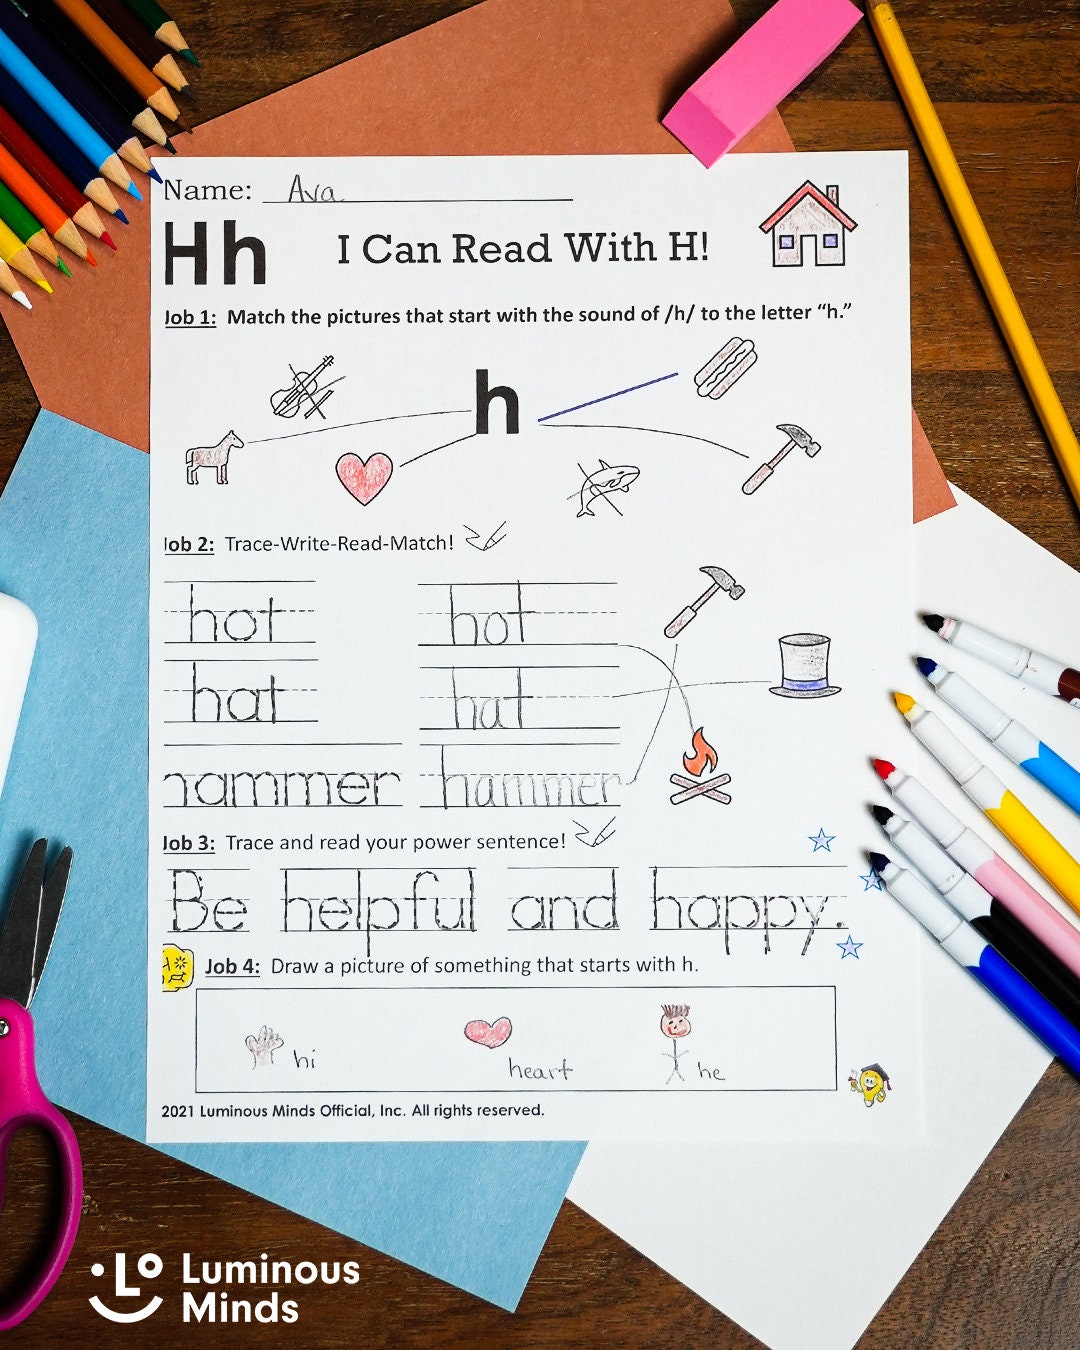 Name: Ava
Hh I Can Read With H!
Job 1: Match the pictures that start with the sound of /h/ to the letter “h.”
h
Job 2: Trace-Write-Read-Match!
hot hot
hat hat
hammer hammer
Job 3: Trace and read your power sentence!
Be helpful and happy.
Job 4: Draw a picture of something that starts with h.
hi heart he
2021 Luminous Minds Official, Inc. All rights reserved.
Luminous
Minds